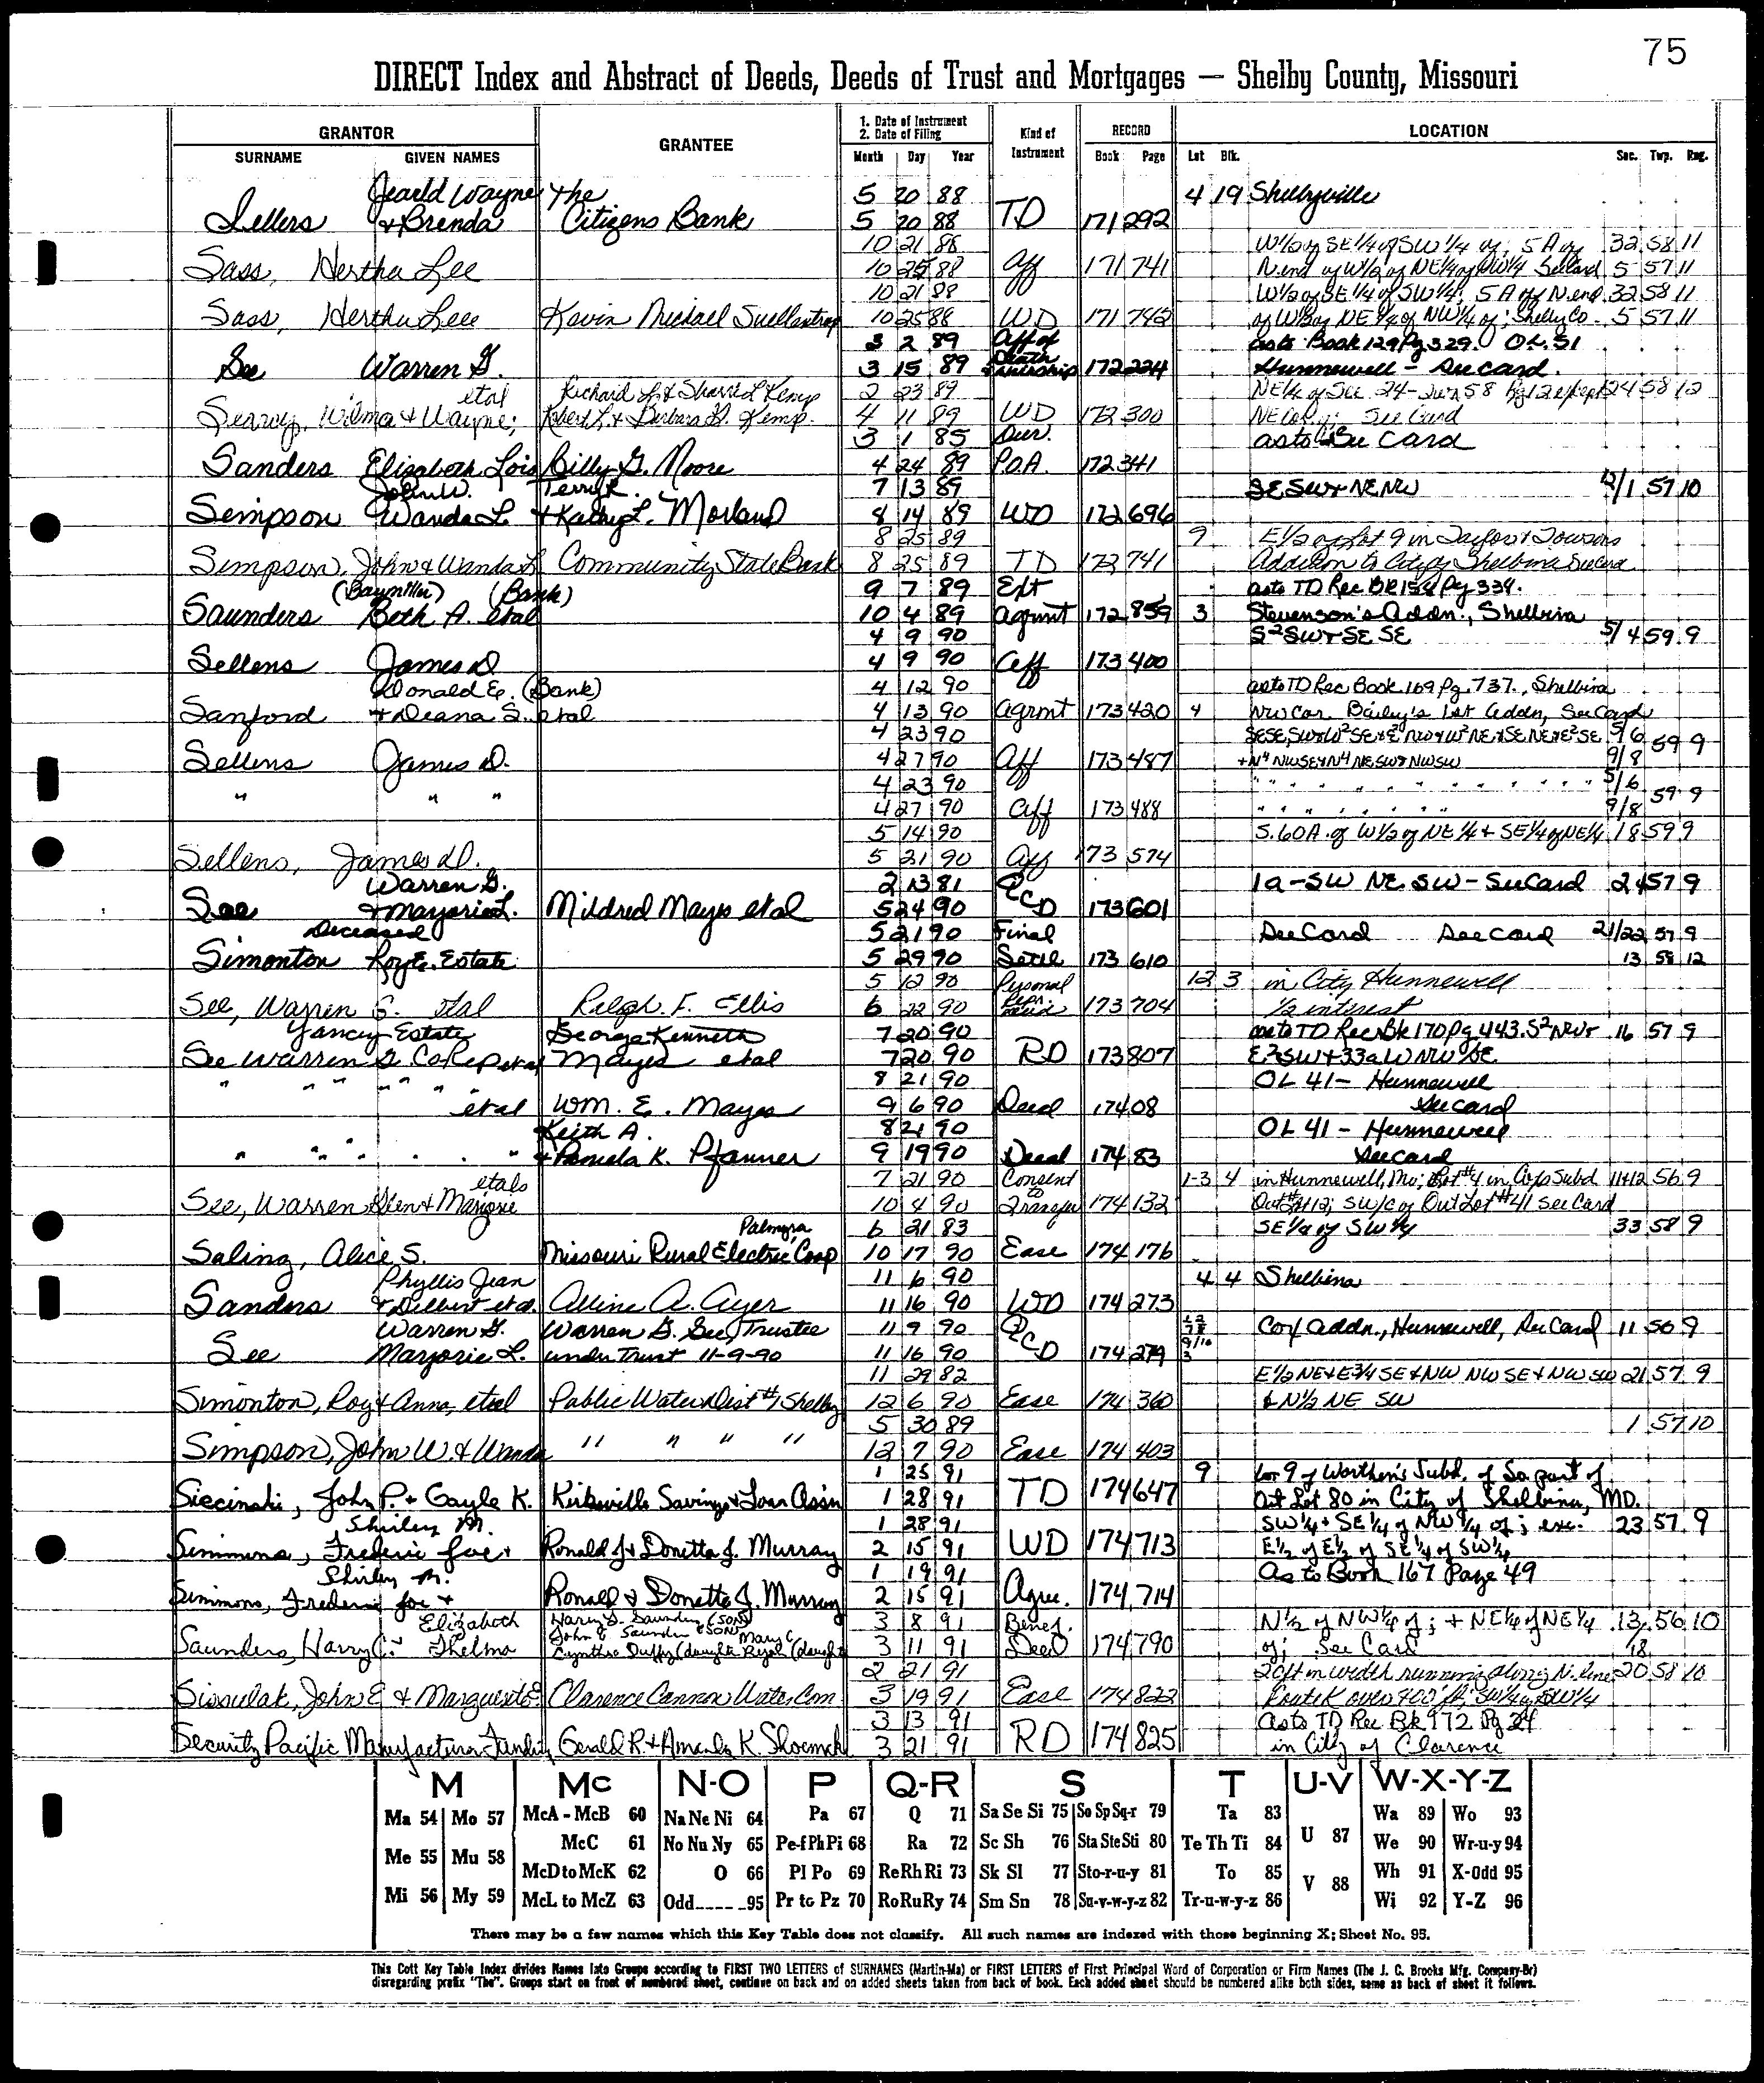 75
DIRECT Index and Abstract of Deeds, Deeds of Trust and Mortgages — Shelby County, Missouri
GRANTOR GRANTEE 1. Date of Instrument 2. Date of Filing Kind of Instrument RECORD LOCATION
SURNAME GIVEN NAMES Month Day Year Book Page Lot Blk. Sec. Twp. Rng.
Jearld Wayne The 5 20 88 4 19 Shelbyville
Sellers & Brenda Citizens Bank 5 20 88 TD 171 292
10 21 88 W 1/2 of SE 1/4 of SW 1/4 of; 5 A of 32 58 11
Sass, Hertha Lee 10 25 88 Aff 171 741 N. end of W 1/2 of NE 1/4 of NW 1/4 See Card 5 57 11
10 21 88 W 1/2 of SE 1/4 of SW 1/4; 5 A of N. end 32 58 11
Sass, Hertha Lee Kevin Michael 10 25 88 WD 171 742 of W 1/2 of NE 1/4 of NW 1/4 of; Shelby Co. 5 57 11
3 2 89 Aff of as to Book 129 Pg 329. OL 51
See Warren G. 3 15 89 Death & 172 224 Hunnewell - See Card.
etal Richard L. & Kemp 2 23 89 NE 1/4 of Sec 24 - 58 24 58 12
Wilma & Wayne; Robert L. & Barbara Kemp. 4 11 89 WD 172 300 See Card
3 1 85 Dur. as to See Card
Sanders Elizabeth Lois Billy G. Moore 4 24 89 P.O.A. 172 341
John W. Terry R. 7 13 89 SE SW & NE NW 12/1 57 10
Simpson Wanda L. & Kathy L. Morland 8 14 89 WD 172 696
8 25 89 9 E 1/2 of Lot 9 in Taylor & Towsons
Simpson, John & Wanda L. Community State Bank 8 25 89 TD 172 741 Addition to City of Shelbina See Card
(Baymiller) (Bank) 9 7 89 Ext as to TD Rec Bk 154 Pg 334.
Saunders Beth A. etal 10 4 89 Agrmt 172 859 3 Stevenson's Addn., Shelbina
4 9 90 S²SW & SE SE 5/4 59 9
Sellens James D 4 9 90 Aff 173 400
Donald E. (Bank) 4 12 90 as to TD Rec Book 169 Pg. 737., Shelbina
Sanford & Deana S. etal 4 13 90 Agrmt 173 420 4 NW Cor. Bailey's 1st Addn, See Card
4 23 90 5/6 59 9
Sellens James D. 4 27 90 Aff 173 487 + N⁴ NWSE & N⁴ NESW & NWSW 9/8
" " " 4 23 90 " " " " " " " " " " " 5/6 59 9
4 27 90 Aff 173 488 " " " " " " " 9/8
5 14 90 S. 60A. of W 1/2 of NE 1/4 + SE 1/4 of NE 1/4 18 59 9
Sellens, James D. 5 21 90 Aff 173 574
Warren G. 2 13 81 QCD 1a - SW NE SW - See Card 24 57 9
See & Marjorie L. Mildred Mayes etal 5 24 90 173 601
Deceased 5 21 90 Final See Card See Card 21/22 57 9
Simonton Roy E. Estate 5 29 90 Settl 173 610 13 58 12
5 12 90 Personal 12 3 in City Hunnewell
See, Warren G. etal Ralph F. Ellis 6 22 90 Repr. Deed 173 704 1/2 interest
Yancey Estate George Kenneth 7 20 90 as to TD Rec Bk 170 Pg. 443. S²NW & 16 57 9
See Warren G Co Rep etal Mayes etal 7 20 90 RD 173 807 E²SW + 33a W NW SE.
" " " " " 8 21 90 OL 41 - Hunnewell
etal WM. E. Mayes 9 6 90 Deed 174 08 See Card
Keith A. 8 21 90 OL 41 - Hunnewell
" " " " " " & Pamela K. Pfanner 9 19 90 Deed 174 83 See Card
etals 7 21 90 Consent 1-3 4 in Hunnewell, Mo; Lot #4 in Subd 11+12 56 9
See, Warren Glen & Marjorie 10 4 90 to Transfer 174 132 SW/C of Out Lot #41 See Card
Palmyra 6 21 83 SE 1/4 of SW 1/4 33 58 9
Saling, Alice S. Missouri Rural Electric Coop 10 17 90 Ease 174 176
Phyllis Jean 11 6 90 4 4 Shelbina
Sanders & Delbert etal. Alline A. Ayer 11 16 90 WD 174 273
Warren G. Warren G. See, Trustee 11 9 90 QCD Cox Addn., Hunnewell, See Card 11 56 9
See Marjorie L. under Trust 11-9-90 11 16 90 174 279
11 29 82 E 1/2 NE & E 3/4 SE & NW NW SE & NW SW 21 57 9
Simonton, Roy & Anna, etal Public Water Dist #1 Shelby 12 6 90 Ease 174 360 & N 1/2 NE SW
5 30 89 1 57 10
Simpson, John W. & Wanda " " " " 12 7 90 Ease 174 403
1 25 91 9 Lot 9 of Worthen's Subd. of So. part of
Siecinski, John P. & Gayle K. Kirksville Savings & Loan Ass'n 1 28 91 TD 174 647 Out Lot 80 in City of Shelbina, MO.
Shirley M. 1 28 91 SW 1/4 + SE 1/4 of NW 1/4 of; exc. 23 57 9
Simmons, Frederic Joe & Ronald J & Donetta J. Murray 2 15 91 WD 174 713 E 1/2 of E 1/2 of SE 1/4 of SW 1/4
Shirley M. 1 19 91 As to Book 167 Page 49
Simmons, Frederic Joe & Ronald & Donetta J. Murray 2 15 91 Agree. 174 714
Elizabeth Harry D. Saunders (SON) 3 8 91 Benef. N 1/2 of NW 1/4 of; + NE 1/4 of NE 1/4 13 56 10
John E Saunders (SON) Mary C
Saunders, Harry C. & Thelma Cynthia Duffy (daughter 3 11 91 Deed 174 790 of; See Card 18
2 21 91 20 ft in width running along N. line 20 58 10
Sissulak, John E & Marguerite E. Clarence Cannon Water Com 3 19 91 Ease 174 822 Route K over 400 ft; SW 1/4 of SW 1/4
3 13 91 as to TD Rec Bk 172 Pg 24
Security Pacific Manufacture Gerald R. & Amanda K. 3 21 91 RD 174 825 in City of Clarence
M Mc N-O P Q-R S T U-V W-X-Y-Z
Ma 54 Mo 57 McA - McB 60 Na Ne Ni 64 Pa 67 Q 71 Sa Se Si 75 So Sp Sq-r 79 Ta 83 Wa 89 Wo 93
Me 55 Mu 58 McC 61 No Nu Ny 65 Pe-f Ph Pi 68 Ra 72 Sc Sh 76 Sta Ste Sti 80 Te Th Ti 84 U 87 We 90 Wr-u-y 94
McD to McK 62 O 66 Pl Po 69 Re Rh Ri 73 Sk Sl 77 Sto-r-u-y 81 To 85 V 88 Wh 91 X-Odd 95
Mi 56 My 59 McL to McZ 63 Odd 95 Pr to Pz 70 Ro Ru Ry 74 Sm Sn 78 Su-v-w-y-z 82 Tr-u-w-y-z 86 Wi 92 Y-Z 96
There may be a few names which this Key Table does not classify. All such names are indexed with those beginning X; Sheet No. 95.
This Cott Key Table Index divides Names into Groups according to FIRST TWO LETTERS of SURNAMES (Martin-Ma) or FIRST LETTERS of First Principal Word of Corporation or Firm Names (The J. C. Brooks Mfg. Company-Br)
disregarding prefix "The". Groups start on front of numbered sheet, continue on back and on added sheets taken from back of book. Each added sheet should be numbered alike both sides, same as back of sheet it follows.